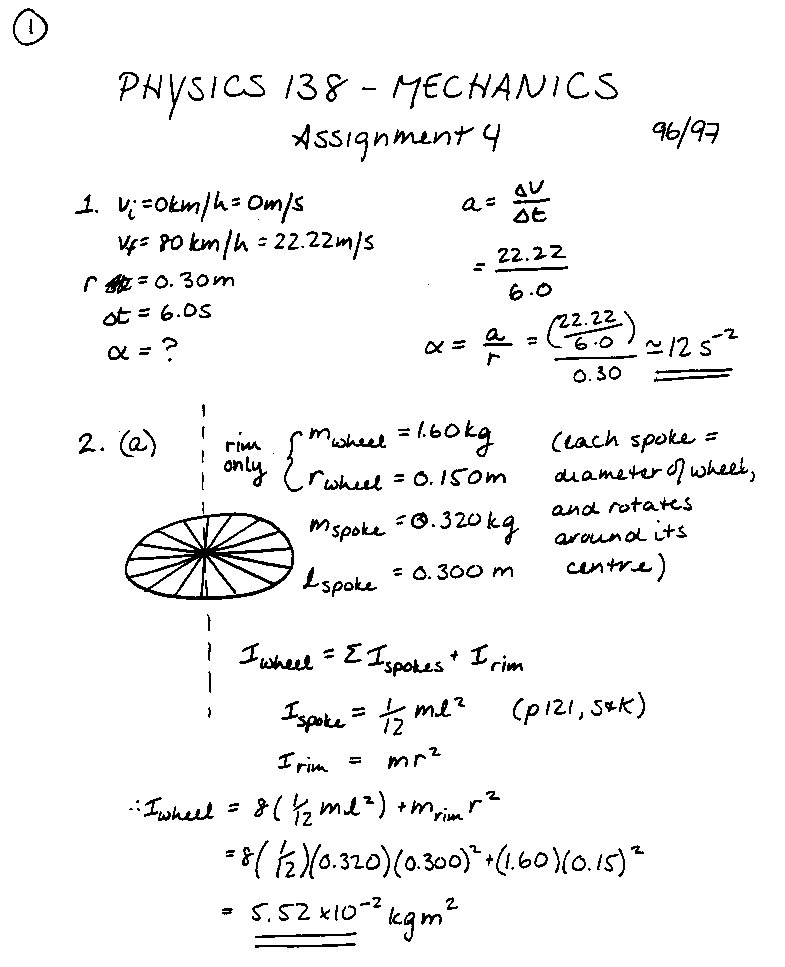 1
PHYSICS 138 - MECHANICS
Assignment 4
96/97
1. Vi = 0km/h = 0m/s
Vf = 80 km/h = 22.22m/s
r = 0.30m
Δt = 6.0s
α = ?
a = ΔV/Δt
= 22.22/6.0
α = a/r = (22.22/6.0)/0.30 ≃ 12 s⁻²
2. (a)
rim only { m wheel = 1.60kg
r wheel = 0.150m
m spoke = 0.320kg
l spoke = 0.300 m
(each spoke =
diameter of wheel,
and rotates
around its
centre)
I wheel = Σ I spokes + I rim
I spoke = 1/12 ml² (p121, S&K)
I rim = mr²
∴ I wheel = 8(1/12 ml²) + m rim r²
= 8(1/12)(0.320)(0.300)² + (1.60)(0.15)²
= 5.52 x10⁻² kgm²